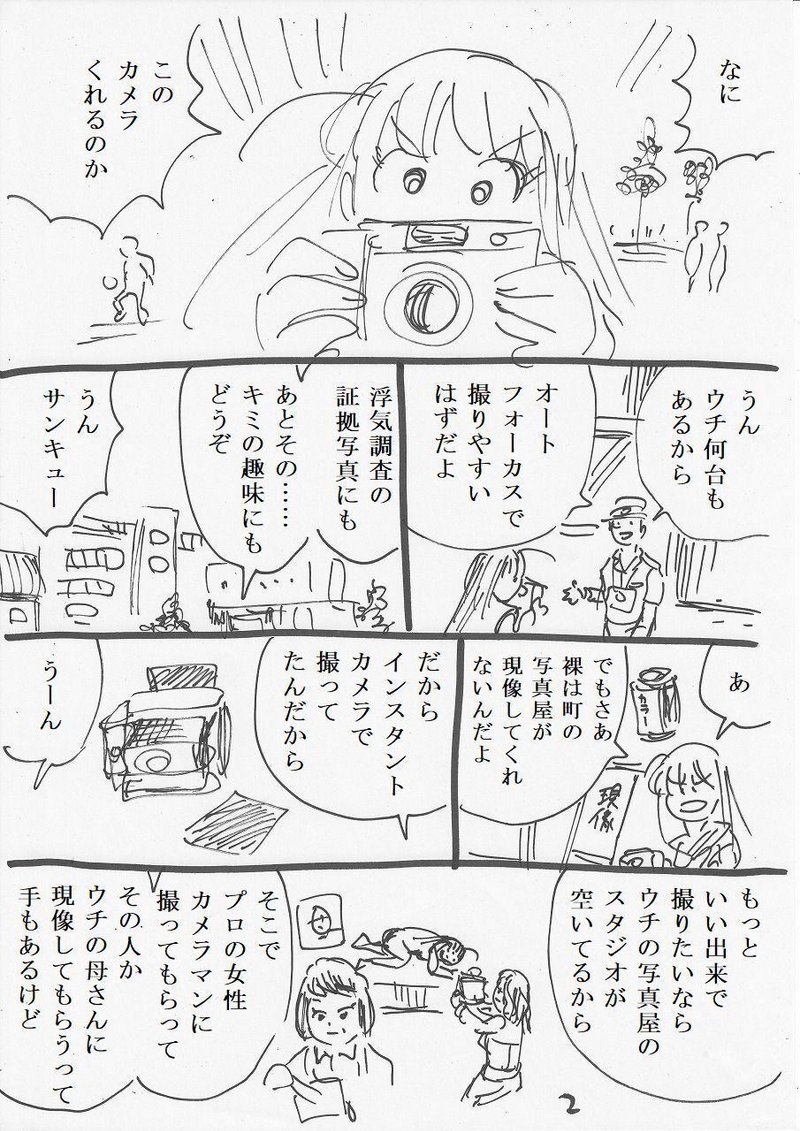 なに
この
カメラ
くれるのか
うん
ウチ何台も
あるから
オート
フォーカスで
撮りやすい
はずだよ
浮気調査の
証拠写真にも
あとその……
キミの趣味にも
どうぞ
うん
サンキュー
あ
カラー
現像
でもさあ
裸は町の
写真屋が
現像してくれ
ないんだよ
だから
インスタント
カメラで
撮って
たんだから
うーん
もっと
いい出来で
撮りたいなら
ウチの写真屋の
スタジオが
空いてるから
そこで
プロの女性
カメラマンに
撮ってもらって
その人か
ウチの母さんに
現像してもらうって
手もあるけど
2